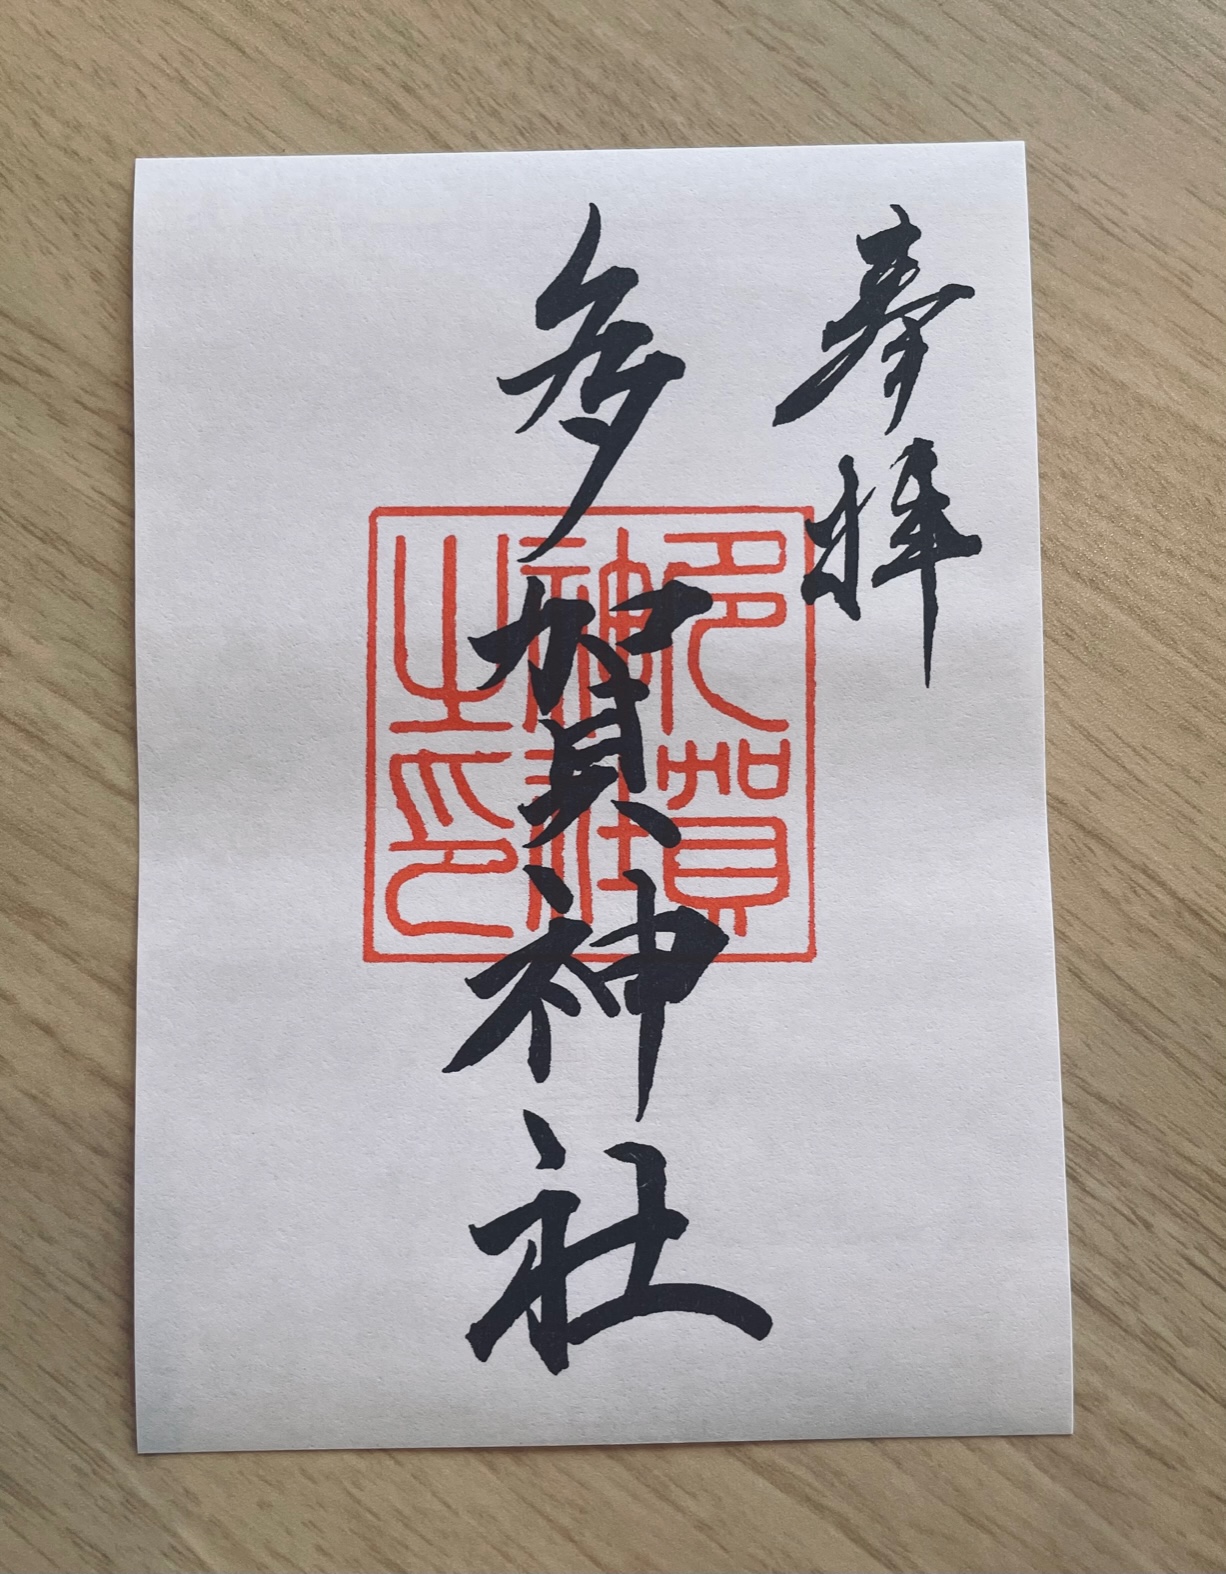 奉拝
多賀神社
多賀
神社
之印